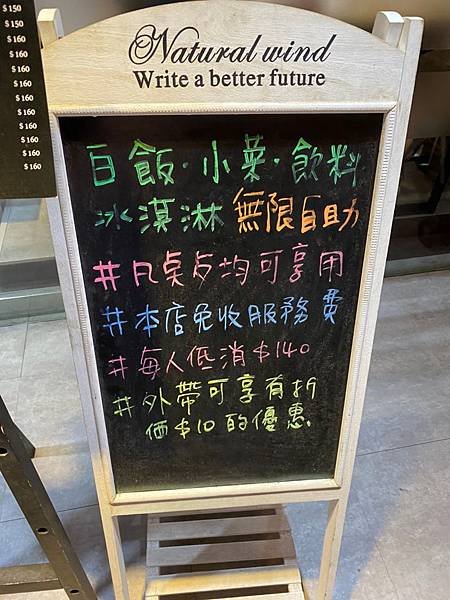 $150
$150
$160
$160
$160
$160
$160
$160
$160
$160
$160
Natural wind
Write a better future
白飯·小菜·飲料
冰淇淋 無限自助
#凡桌点均可享用
#本店免收服務費
#每人低消$140
#外帶可享有折
価$10的優惠